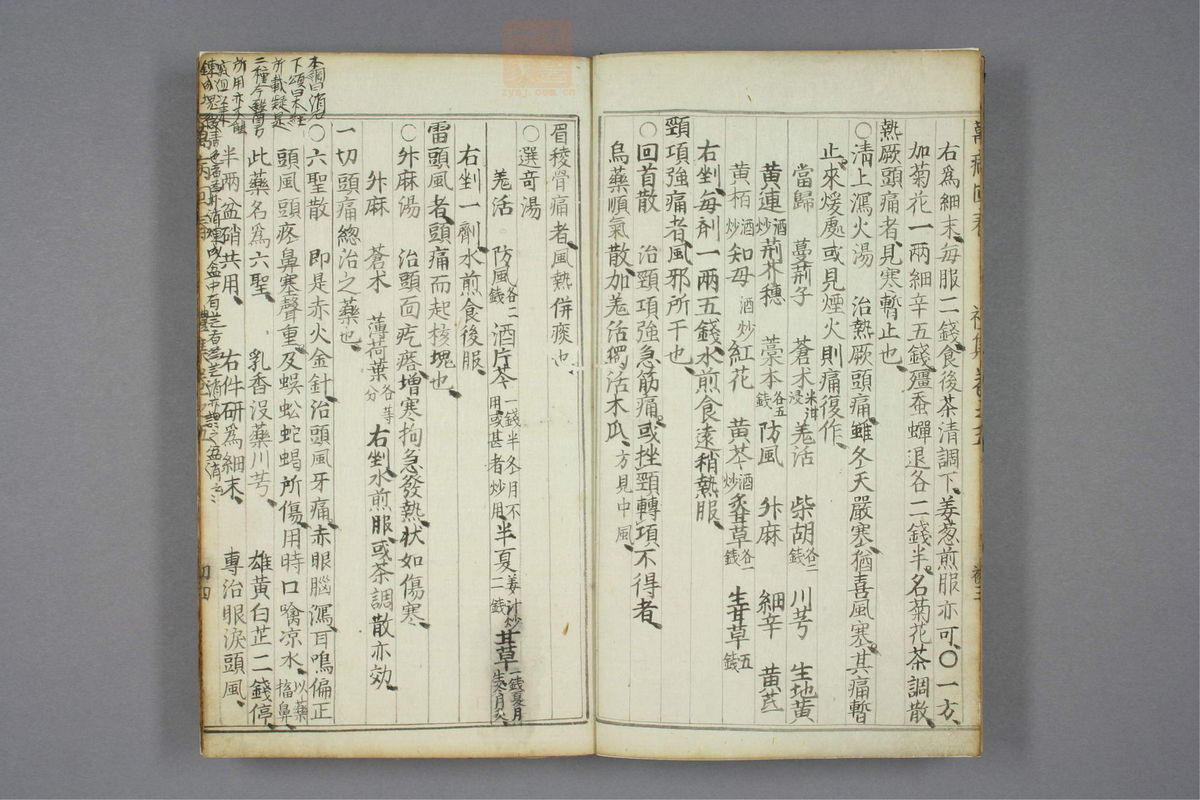 右爲細末毎服二錢食後茶清調下姜葱煎服亦可○一方
加菊花一兩細辛五錢殭蚕蟬退各二錢半名菊花茶調散
熱厥頭痛者見寒暫止也
○清上瀉火湯 治熱厥頭痛雖冬天嚴寒猶喜風寒其痛暫
止來煖處或見煙火則痛復作
當歸 蔓荊子 蒼术米泔浸 羗活 柴胡各二錢 川芎 生地黄
黄連酒炒 荆芥穗 藁本各五錢 防風 升麻 細辛 黄芪
黄栢酒炒 知母酒炒 紅花 黄芩酒炒 炙甘草各一錢 生甘草五錢
右剉毎剤一兩五錢水煎食遠稍熱服
頸項強痛者風邪所干也
○回首散 治頸項強急筋痛或挫頸轉項不得者
烏藥順氣散加羗活獨活木瓜方見中風
眉稜骨痛者風熱併痰也
○選奇湯
羗活 防風各二錢 酒片芩一錢半冬月不用或甚者炒用 半夏姜汁炒二錢 甘草一錢夏月生冬月炙
右剉一劑水煎食後服
雷頭風者頭痛而起核塊也
○升麻湯 治頭面疙瘩増寒拘急發熱状如傷寒
升麻 蒼术 薄荷葉各等分 右剉水煎服或茶調散亦効
一切頭痛總治之藥也
○六聖散 即是赤火金針治頭風牙痛赤眼腦瀉耳鳴偏正
頭風頭疼鼻塞聲重及蜈蚣蛇蝎所傷用時口噙凉水以藥搐鼻
此藥名爲六聖 乳香没藥川芎 雄黄白芷二錢停
半兩盆硝共用 右件研爲細末 專治眼淚頭風